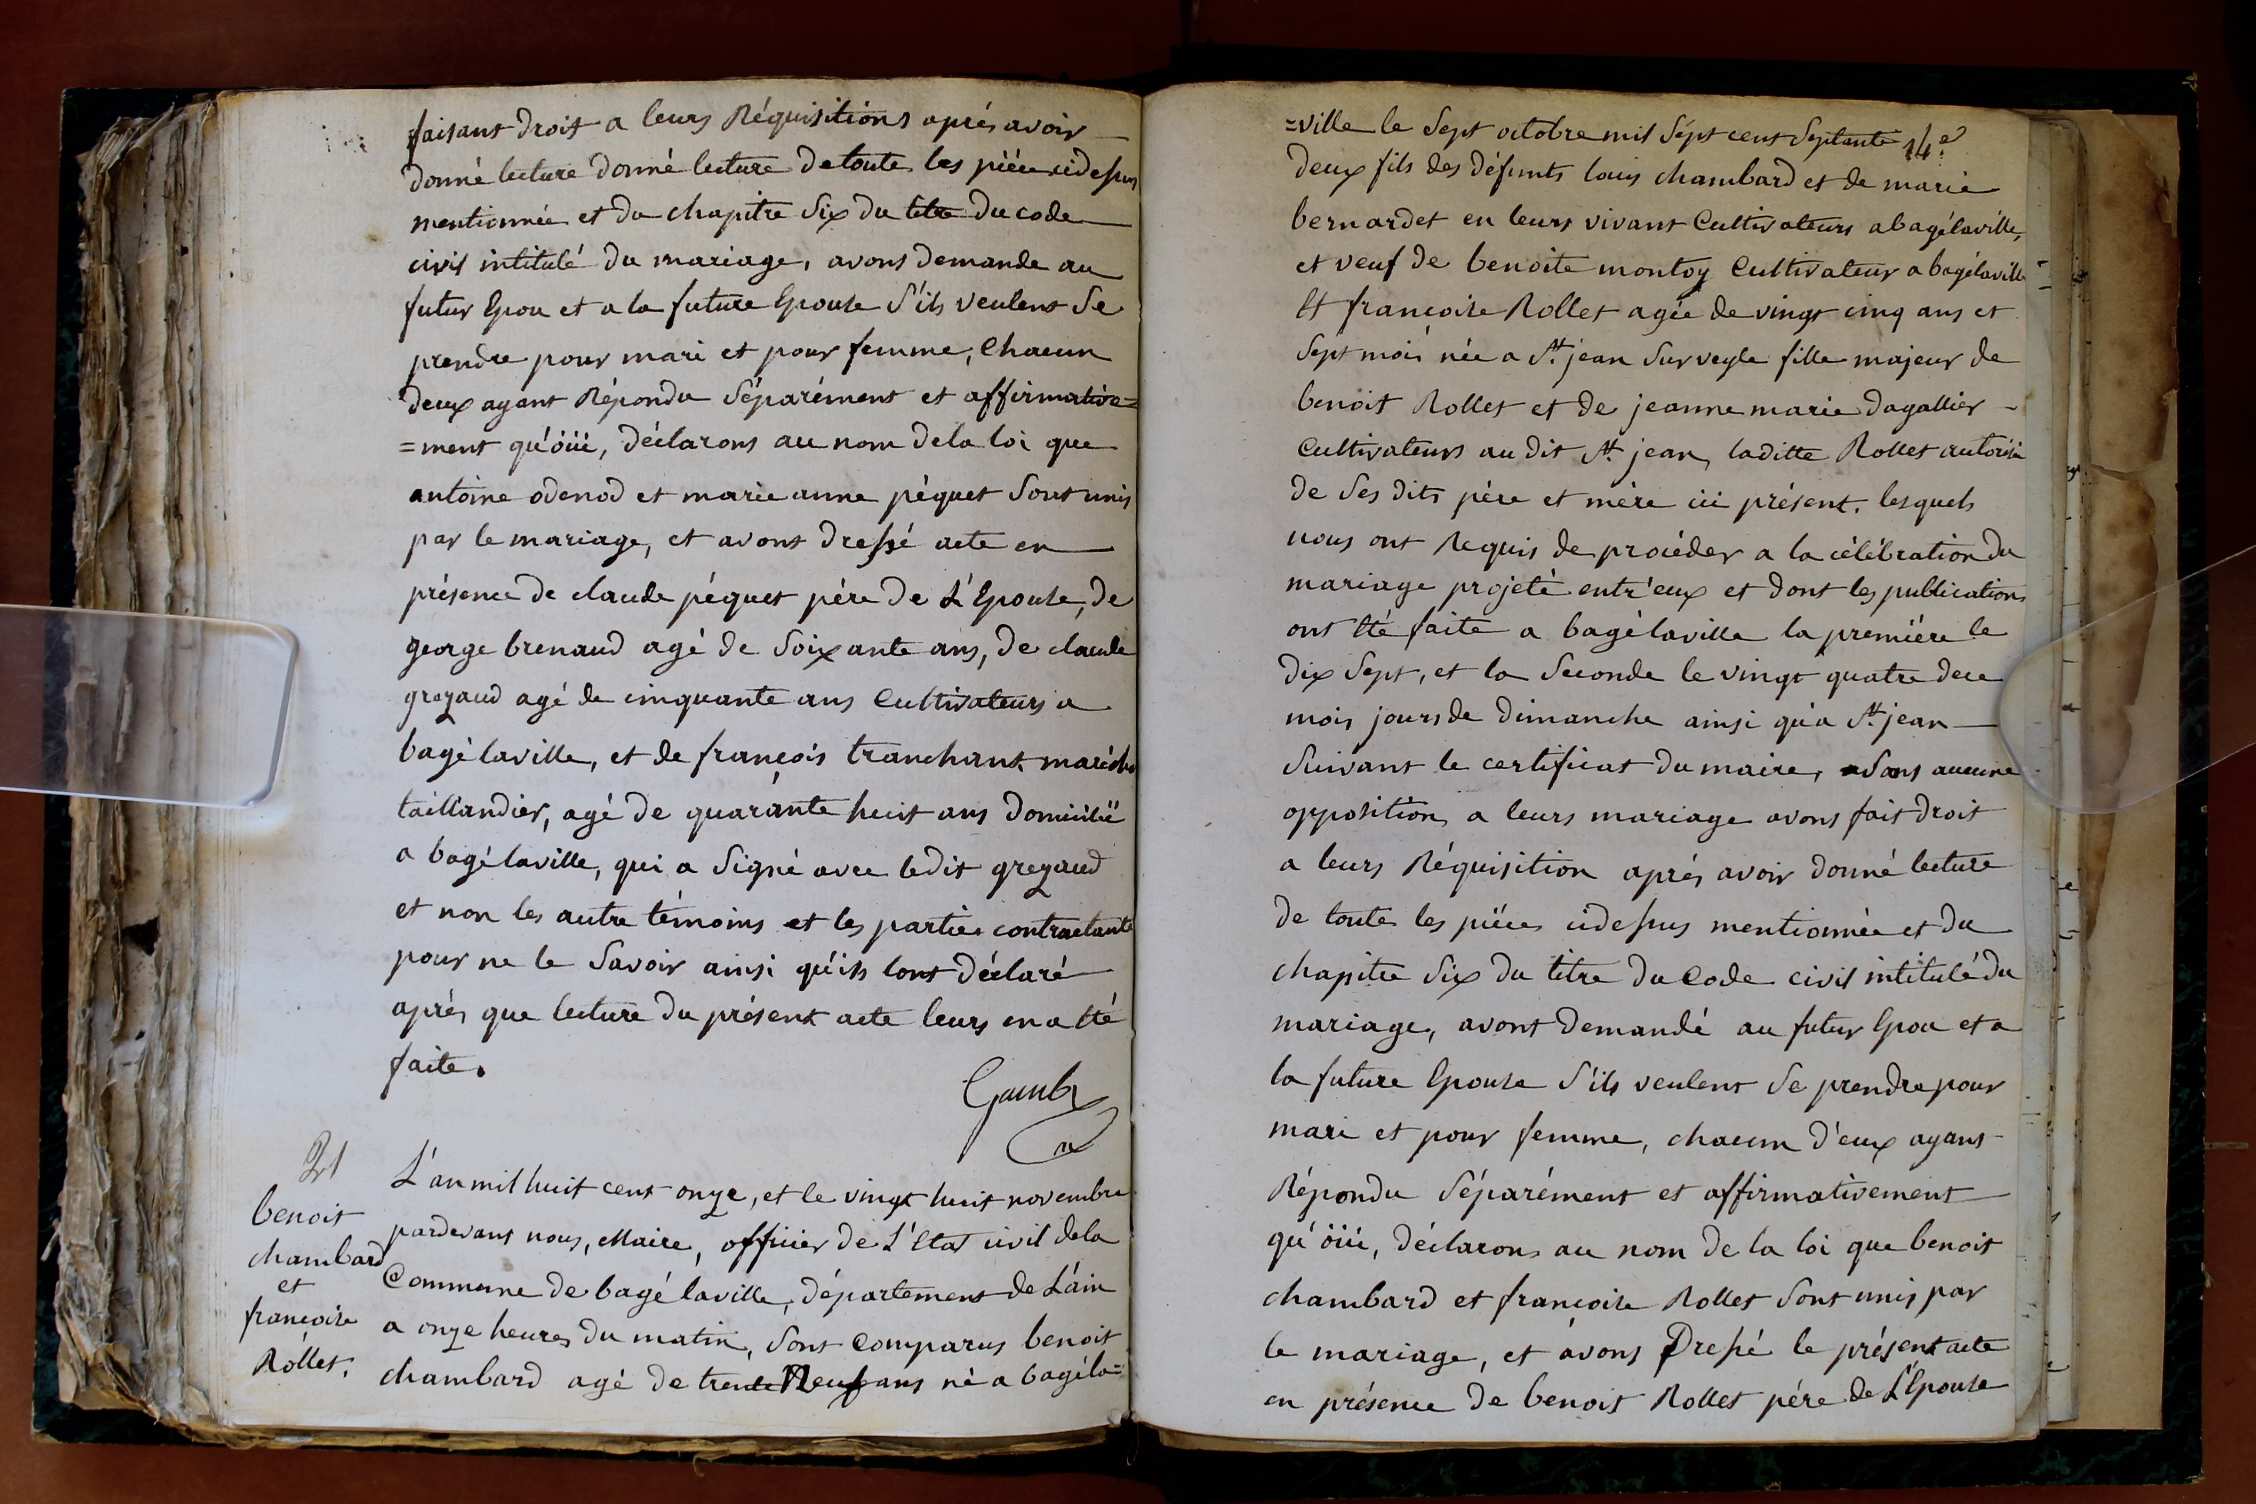 faisant droit a leurs Réquisitions aprés avoir
donné lecture donné lecture de toute les piéce cidessus
mentionnée et du chapitre Six du titre du code
civil intitulé du mariage, avons demande au
futur Epou et a la future Epouse S'ils veulent Se
prendre pour mari et pour femme, Chacun
deux ayant Répondu Séparément et affirmative=
=ment qu'öüi, déclarons au nom de la loi que
antoine odenod et marie anne péquet Sont unis
par le mariage, et avons dressé acte en
présence de claude péquet pére de L'Epouse, de
george brenaud agé de Soixante ans, de claude
greZaud agé de cinquante ans Cultivateurs a
bagé laville, et de françois tranchant maréchal
taillandier, agé de quarante huit ans domicilié
a bagé laville, qui a Signé avec ledit greZaud
et non les autre témoins et les parties contractante
pour ne le Savoir ainsi qu'ils lont déclaré
aprés que lecture du présent acte leurs en a Eté
faite.
21
benoit
chambard
et
françoise
Rollet.
L'an mil huit cent onze, et le vingt huit novembre
pardevant nous, Maire, officier de L'Etat civil de la
Commune de bagé laville, département de L'ain
a onze heures du matin, Sont Comparus benoit
chambard agé de trente Neuf ans né a bagé la=
14.e
=ville le Sept octobre mil Sépt cent Septante
deux fils des défunts louis chambard et de marie
bernardet en leurs vivant Cultivateurs a bagé laville,
et veuf de benoite montoy Cultivateur a bagé laville
Et françoise Rollet agée de vingt cinq ans et
Sept mois née a St. jean Sur veyle fille majeur de
benoit Rollet et de jeanne marie dagallier
Cultivateurs au dit St. jean, laditte Rollet autorisée
de Ses dits pére et mére ici présent. lesquels
nous ont Requis de procéder a la célébration du
mariage projeté entr'eux et dont les publications
ont Eté faite a bagé laville la premiére le
dix Sept, et la Seconde le vingt quatre de ce
mois jours de dimanche ainsi qu'a St. jean
Suivant le certificat du maire, Sans aucune
opposition a leurs mariage avons fait droit
a leurs Réquisition aprés avoir donné lecture
de toute les piéces cidessus mentionnée et du
chapitre Six du titre du Code civil intitulé du
mariage, avont demandé au futur Epou et a
la future Epouse S'ils veulent Se prendre pour
mari et pour femme, chacun d'eux ayant
Répondu Séparément et affirmativement
qu'öüi, déclarons au nom de la loi que benoit
chambard et françoise Rollet Sont unis par
le mariage, et avons Dressé le présent acte
en présence de benoit Rollet pére de L'Epouse